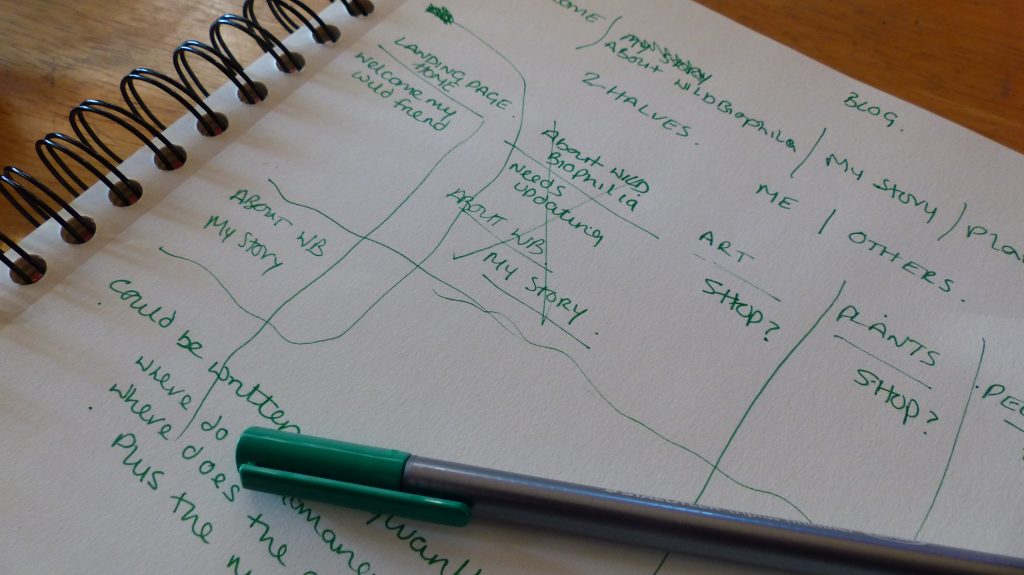 OME / my story
ABOUT WILDBIOPHILIA / My STORY / Pla
BLOG.
2 HALVES.
ME | OTHERS.
LANDING PAGE
HOME
Welcome my
wild friend
About WILD
BIOPHILIA
Needs
updating
ABOUT WB
✓ My STORY.
ABOUT WB
My STORY
ART
SHOP?
PLANTS
SHOP?
PEO
Could be written
where do
where does the
Plus the